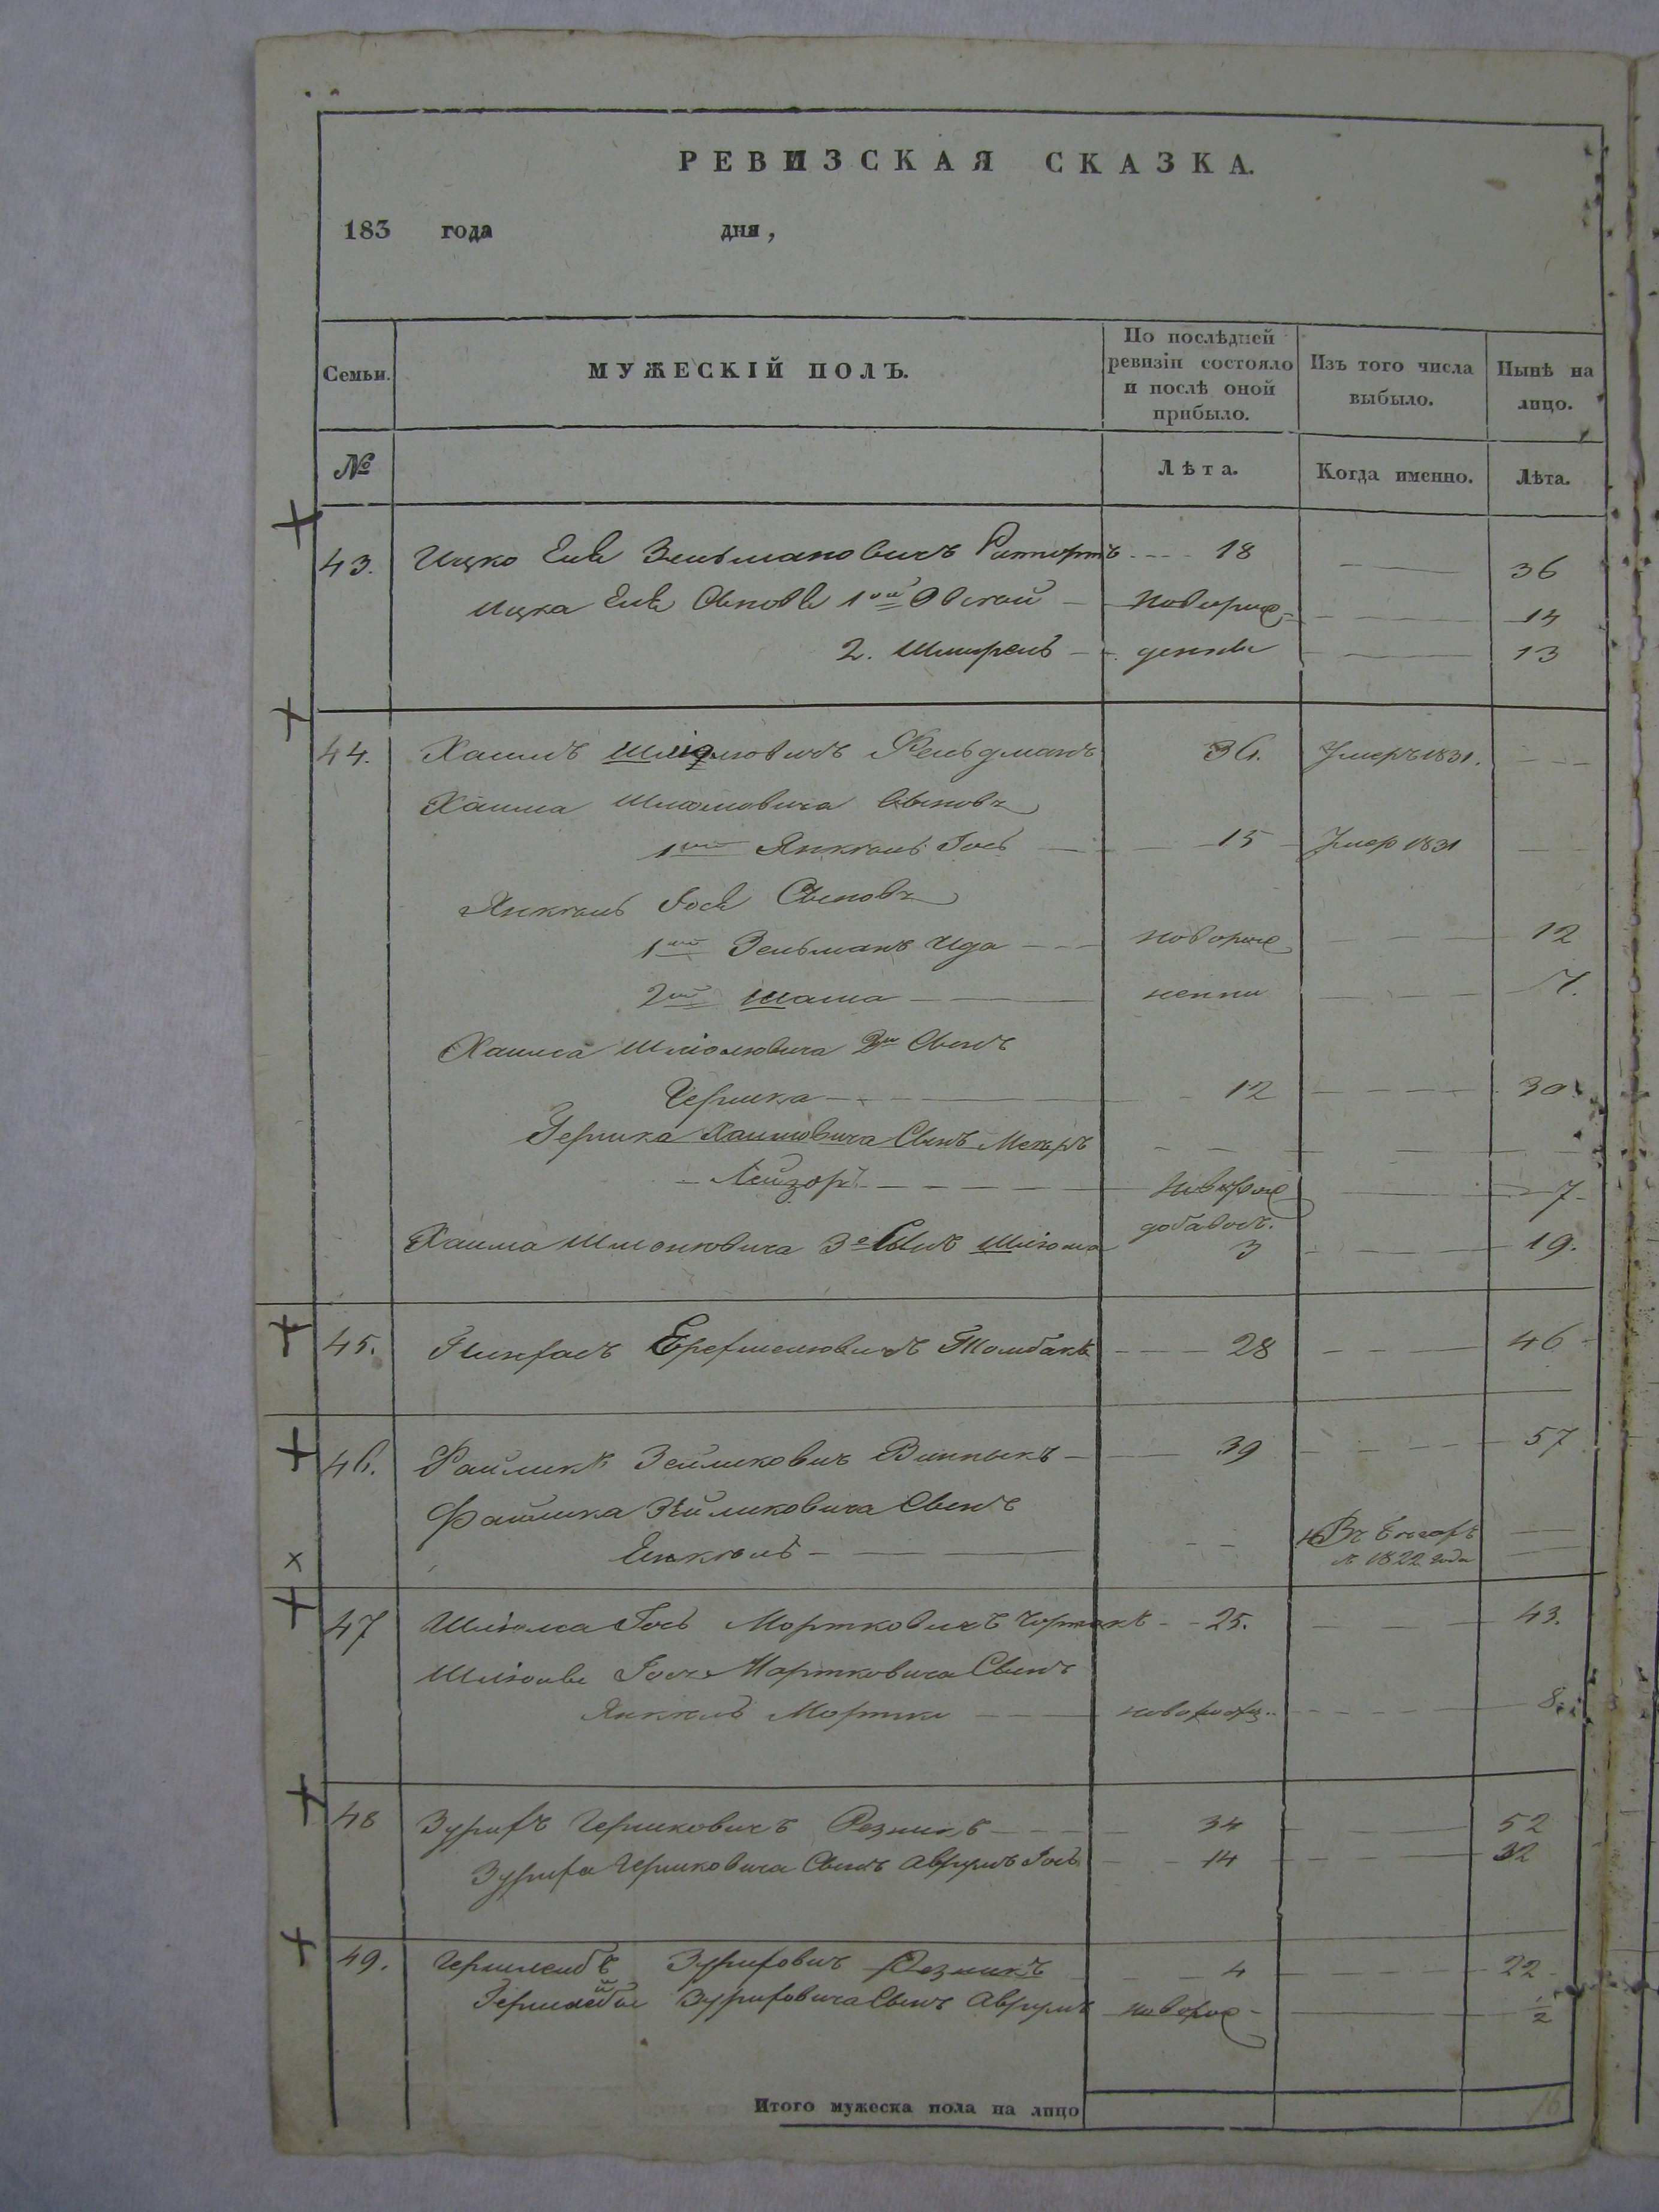 РЕВИЗСКАЯ СКАЗКА.
183 года дня,
Семьи. МУЖЕСКІЙ ПОЛЪ. По послѣдней ревизіи состояло и послѣ оной прибыло. Изъ того числа выбыло. Нынѣ на лицо.
№ Лѣта. Когда именно. Лѣта.
43. Ицко Еля Зельмановичъ 18 36
Ицка Еля Сыновя 1ой Новорож 14
2. Шмирель денныи 13
44. Хаимъ Шліомовичъ Фельдманъ 36. Умеръ 1831.
Хаима Шліомовича Сыновъя
1ый Янкель Іось 15 Умер 1831
Янкель Іося Сыновъя
1ый Зельманъ Ида новорож 12
2ой Шама ненни
Хаима Шліомовича 2й Сынъ
Гершка 12 30
Гершка Хаимовича Сынъ Мееръ
Лейзоръ Новорож 7
Хаима Шліомовича 3й Сынъ Шліома добавоч. 3 19.
45. Пинхасъ 28 46
46. Файликъ Зейликовичъ Винныкъ 39 57
Файлика Зейликовича Сынъ
Янкель Въ 1822 года
47 Шліома Іось Мортковичъ 25. 43.
Шліомы Іося Мортковича Сынъ
Янкель Мортко новорожд. 8.
48 Зурихъ Гершковичъ Резникъ 34 52
Зуриха Гершковича Сынъ Аврумъ Іось 14 32
49. Гершлейбъ Зуриховичъ Резникъ 4 22
Гершлейба Зуриховича Сынъ Аврумъ новорож 1/2
Итого мужеска пола на лицо 16